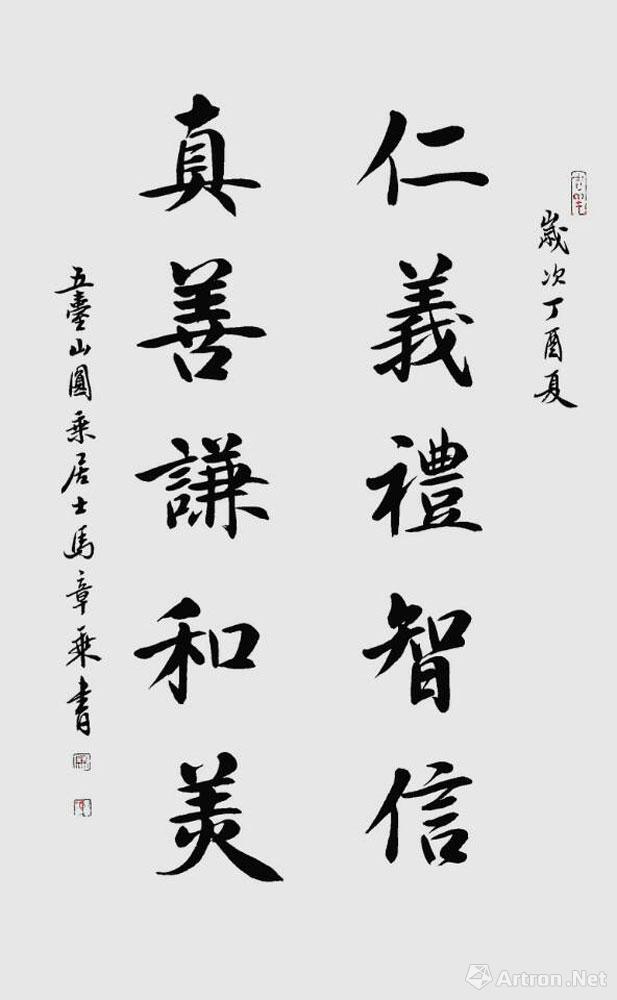 歲次丁酉夏
仁義禮智信
真善謙和美
五臺山圓乘居士馬章乘書
Artron.Net